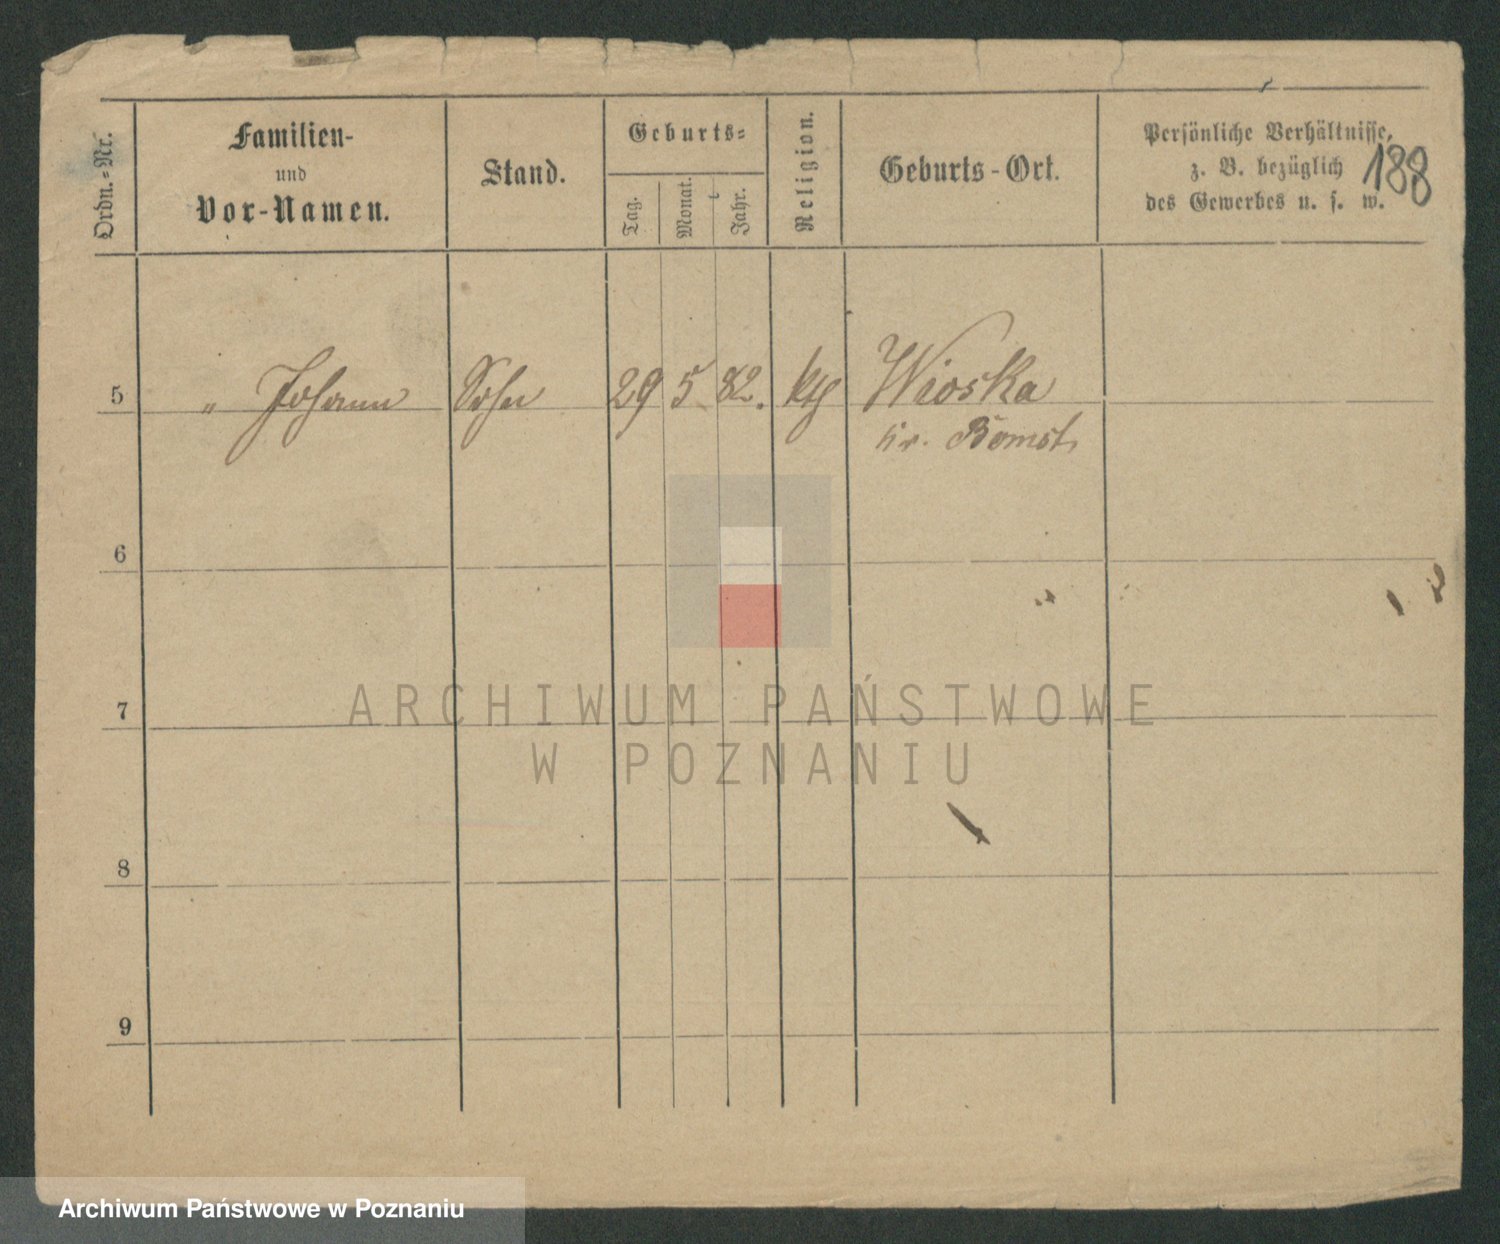 188
Ordn.-Nr.
Familien-
und
Vor-Namen.
Stand.
Geburts-
Tag.
Monat.
Jahr.
Religion.
Geburts-Ort.
Persönliche Verhältnisse,
z. B. bezüglich
des Gewerbes u. s. w.
5 " Johann Sohn 29 5 82. kth Wioska
Kr. Bomst.
6
7
8
9
ARCHIWUM PAŃSTWOWE
W POZNANIU
Archiwum Państwowe w Poznaniu